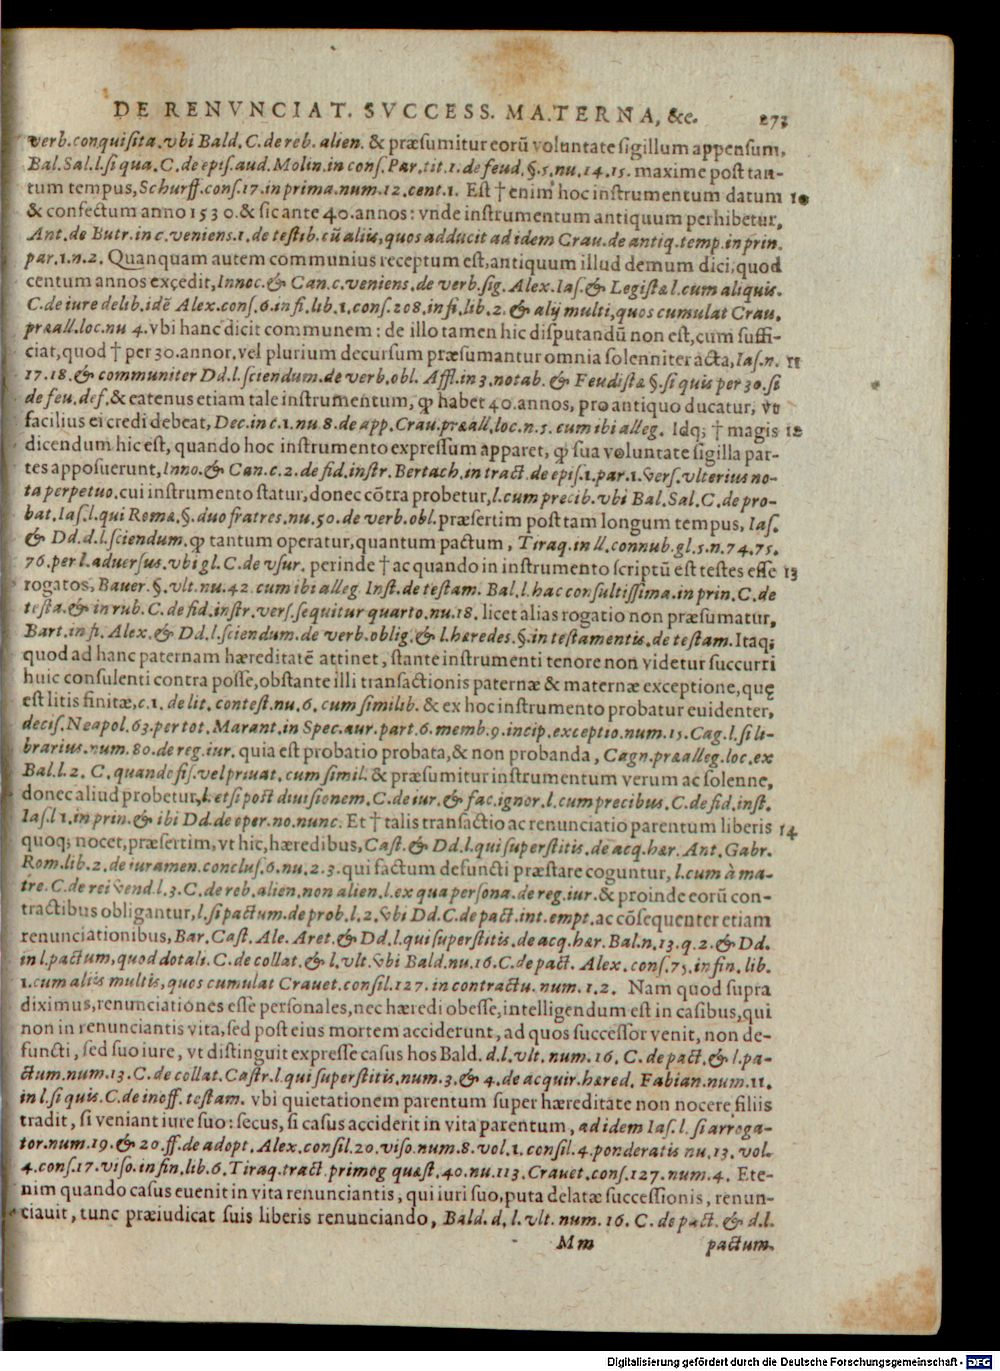 DE RENVNCIAT. SVCCESS. MATERNA, &c. 273
verb. conquisita. vbi Bald. C. de reb. alien. & præsumitur eorũ voluntate sigillum appensum,
Bal. Sal. l. si qua. C. de epis. aud. Molin. in cons. Par. tit. 1. de feud. §. 5. nu. 14. 15. maxime post tan-
tum tempus, Schurff. cons. 17. in prima. num. 12. cent. 1. Est † enim hoc instrumentum datum 10
& confectum anno 1530. & sic ante 40. annos: vnde instrumentum antiquum perhibetur,
Ant. de Butr. in c. veniens. 1. de testib. cũ aliis, quos adducit ad idem Crau. de antiq. temp. in prin.
par. 1. n. 2. Quanquam autem communius receptum est, antiquum illud demum dici, quod
centum annos excedit, Innoc. & Can. c. veniens. de verb. sig. Alex. Ias. & Legistæ l. cum aliquis.
C. de iure delib. idẽ Alex. cons. 6. in fi. lib. 1. cons. 208. in fi. lib. 2. & alij multi, quos cumulat Crau.
præall. loc. nu 4. vbi hanc dicit communem: de illo tamen hic disputandũ non est, cum suffi-
ciat, quod † per 30. annor. vel plurium decursum præsumantur omnia solenniter acta, Ias. n. 11
17. 18. & communiter Dd. l. sciendum. de verb. obl. Affl. in 3. notab. & Feudistæ §. si quis per 30. si
de feu. def. & eatenus etiam tale instrumentum, ꝙ habet 40. annos, pro antiquo ducatur, vt
facilius ei credi debeat, Dec. in c. 1. nu 8. de app. Crau. præall. loc. n. 5. cum ibi alleg. Idq; † magis 12
dicendum hic est, quando hoc instrumento expressum apparet, ꝙ sua voluntate sigilla par-
tes apposuerunt, Inno. & Can. c. 2. de fid. instr. Bertach. in tract. de epis. 1. par. 1. vers. vlterius no-
ta perpetuo. cui instrumento statur, donec cõtra probetur, l. cum precib. vbi Bal. Sal. C. de pro-
bat. Ias. l. qui Romæ, §. duo fratres. nu. 50. de verb. obl. præsertim post tam longum tempus, Ias.
& Dd. d. l. sciendum. ꝙ tantum operatur, quantum pactum, Tiraq. in ll. connub. gl. 5. n. 74. 75.
76. per l. aduersus. vbi gl. C. de vsur. perinde † ac quando in instrumento scriptũ est testes esse 13
rogatos, Bauer. §. vlt. nu. 42. cum ibi alleg. Inst. de testam. Bal. l. hac consultissima. in prin. C. de
testa. & in rub. C. de fid. instr. vers. sequitur quarto. nu. 18. licet alias rogatio non præsumatur,
Bart. in fi. Alex. & Dd. l. sciendum. de verb. oblig. & l. hæredes. §. in testamentis. de testam. Itaq;
quod ad hanc paternam hæreditatẽ attinet, stante instrumenti tenore non videtur succurri
huic consulenti contra posse, obstante illi transactionis paternæ & maternæ exceptione, quę
est litis finitæ, c. 1. de lit. contest. nu. 6. cum similib. & ex hoc instrumento probatur euidenter,
decis. Neapol. 63. per tot. Marant. in Spec. aur. part. 6. memb. 9. incip. exceptio. num. 15. Cag. l. si li-
brarius. num. 80. de reg. iur. quia est probatio probata, & non probanda, Cagn. præalleg. loc. ex
Bal. l. 2. C. quando fis. vel priuat. cum simil. & præsumitur instrumentum verum ac solenne,
donec aliud probetur, l. etsi post diuisionem. C. de iur. & fac. ignor. l. cum precibus. C. de fid. inst.
Ias. l 1. in prin. & ibi Dd. de oper. no. nunc. Et † talis transactio ac renunciatio parentum liberis 14
quoq; nocet, præsertim, vt hic, hæredibus, Cast. & Dd. l. qui superstitis. de acq. hær. Ant. Gabr.
Rom. lib. 2. de iuramen. conclus. 6. nu. 2. 3. qui factum defuncti præstare coguntur, l. cum à ma-
tre. C. de rei vend. l. 3. C. de reb. alien. non alien. l. ex qua persona. de reg. iur. & proinde eorũ con-
tractibus obligantur, l. si pactum. de prob. l. 2. vbi Dd. C. de pact. int. empt. ac cõsequenter etiam
renunciationibus, Bar. Cast. Ale. Aret. & Dd. l. qui superstitis. de acq. hær. Bal. n. 13. q. 2. & Dd.
in l. pactum, quod dotali. C. de collat. & l. vlt. vbi Bald. nu. 16. C. de pact. Alex. cons. 75. in fin. lib.
1. cum aliis multis, quos cumulat Crauet. consil. 127. in contractu. num. 1. 2. Nam quod supra
diximus, renunciationes esse personales, nec hæredi obesse, intelligendum est in casibus, qui
non in renunciantis vita, sed post eius mortem acciderunt, ad quos successor venit, non de-
functi, sed suo iure, vt distinguit expresse casus hos Bald. d. l. vlt. num. 16. C. de pact. & l. pa-
ctum. num. 13. C. de collat. Castr. l. qui superstitis. num. 3. & 4. de acquir. hæred. Fabian. num. 11.
in l. si quis. C. de inoff. testam. vbi quietationem parentum super hæreditate non nocere filiis
tradit, si veniant iure suo: secus, si casus acciderit in vita parentum, ad idem Ias. l. si arroga-
tor. num. 19. & 20. ff. de adopt. Alex. consil. 20. viso num. 8. vol. 1. consil. 4. ponderatis nu. 13. vol.
4. cons. 17. viso. in fin. lib. 6. Tiraq. tract. primog quæst. 40. nu. 113. Crauet. cons. 127. num. 4. Ete-
nim quando casus euenit in vita renunciantis, qui iuri suo, puta delatæ successionis, renun-
ciauit, tunc præiudicat suis liberis renunciando, Bald. d. l. vlt. num. 16. C. de pact. & d. l.
Mm pactum.
Digitalisierung gefördert durch die Deutsche Forschungsgemeinschaft - DFG